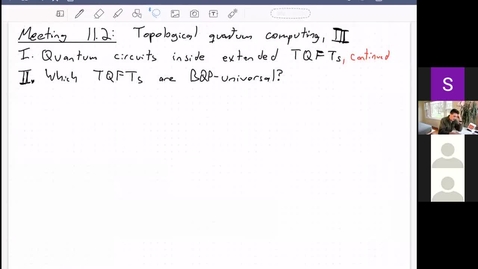 Meeting 11.2: Topological quantum computing, III
I. Quantum circuits inside extended TQFTs, continued
II. Which TQFTs are BQP-universal?
S